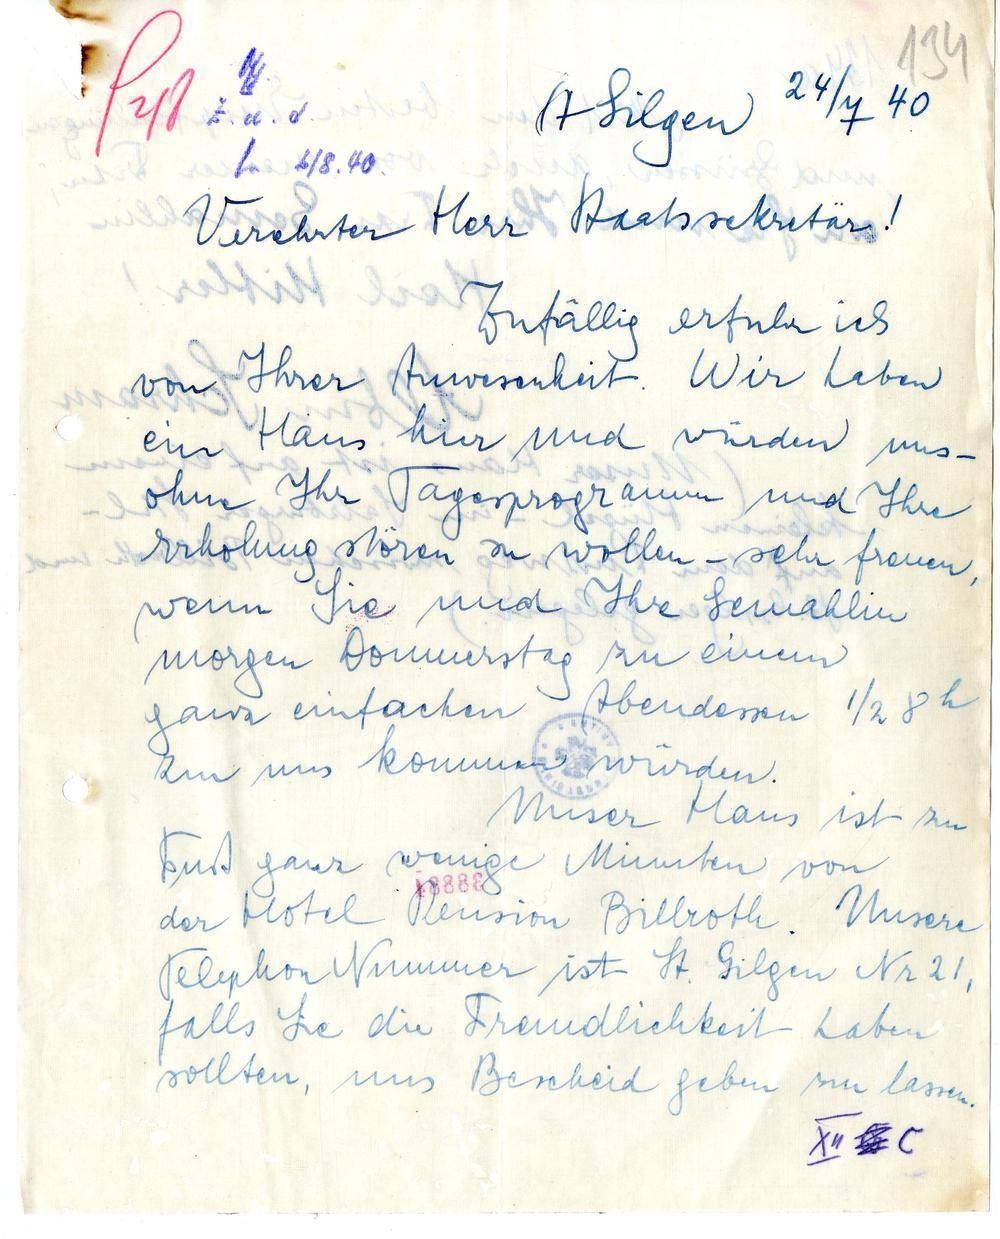 134
St Gilgen 24/7 40
Z. d. A.
2/8.40.
Verehrter Herr Staatssekretär!
Zufällig erfuhr ich
von Ihrer Anwesenheit. Wir haben
ein Haus hier und würden uns –
ohne Ihr Tagesprogramm und Ihre
Erholung stören zu wollen – sehr freuen,
wenn Sie und Ihre Gemahlin
morgen Donnerstag zu einem
ganz einfachen Abendessen 1/2 8 h
zu uns kommen würden.
Unser Haus ist zu
Fuß ganz wenige Minuten von
der Hotel Pension Billroth. Unsere
Telephon Nummer ist St. Gilgen Nr 21,
falls Sie die Freundlichkeit haben
sollten, uns Bescheid geben zu lassen.
XII C